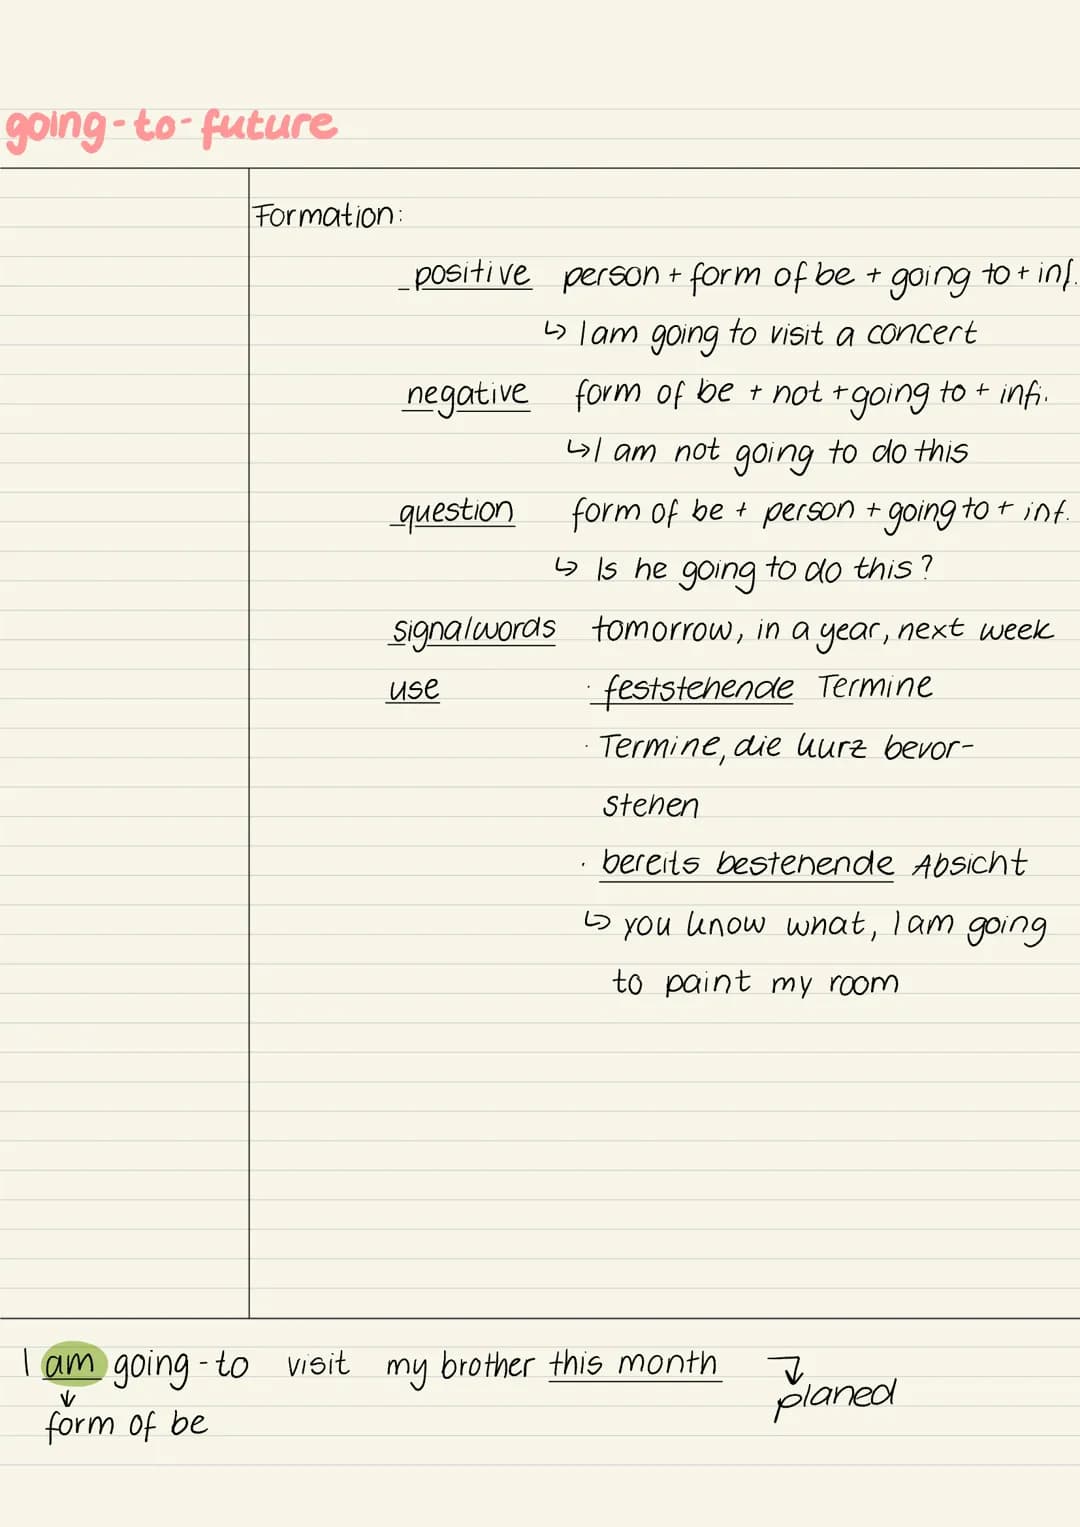 going-to-future
Formation:
positive person + form of be + going to + inf.
↳ I am going to visit a concert
negative form of be + not + going to + infi.
↳ I am not going to do this
question form of be + person + going to + inf.
↳ Is he going to do this?
signalwords tomorrow, in a year, next week
use · feststehende Termine
· Termine, die kurz bevor-
stehen
· bereits bestehende Absicht
↳ you know what, I am going
to paint my room
I am going-to visit my brother this month ↴
planed
↓
form of be